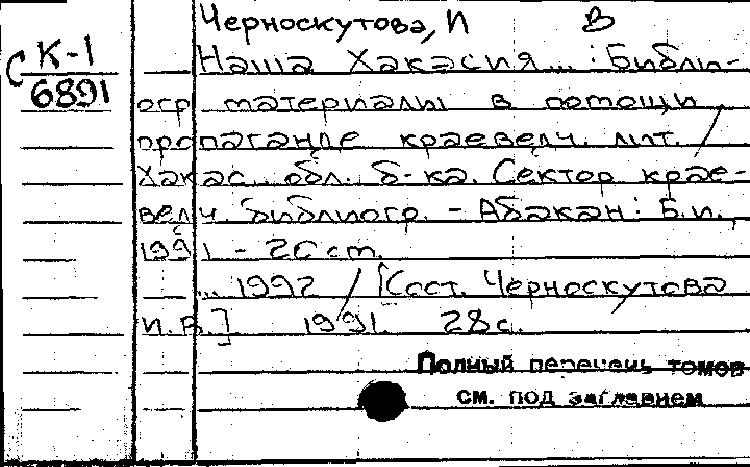 Черноскутова, И В
С К-1
6891
Наша Хакасия... : Библи-
огр. материалы в помощи
пропаганде краеведч. лит. /
Хакас. обл. б-ка. Сектор крае-
ведч. библиогр. - Абакан: Б.и.,
1991 - 20 cm.
... 1992 / [Сост. Черноскутова
И.В.] 1991. 28 с.
Полный перечень томов
см. под заглавием